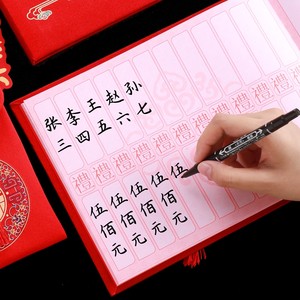 张三
李四
王五
赵六
孙七
禮禮禮禮禮禮禮禮禮禮禮
伍佰元
伍佰元
伍佰元
伍佰元
伍佰元